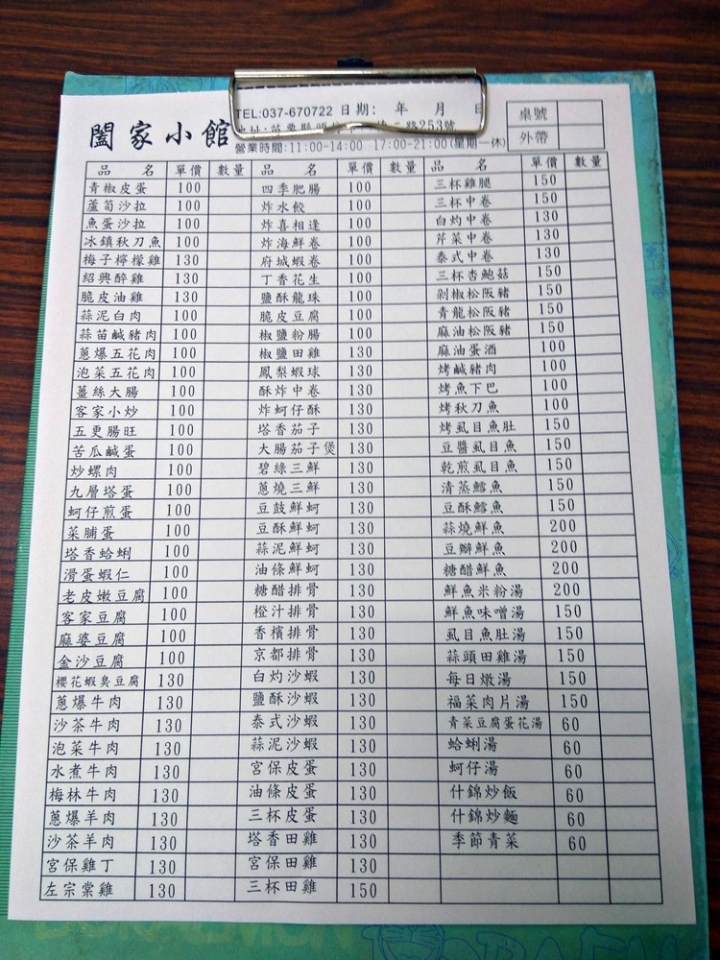 闔家小館
TEL:037-670722 日期: 年 月 日
路253號
營業時間:11:00-14:00 17:00-21:00(星期一休)
桌號
外帶
品名 單價 數量 品名 單價 數量 品名 單價 數量
青椒皮蛋 100 四季肥腸 100 三杯雞腿 150
蘆筍沙拉 100 炸水餃 100 三杯中卷 150
魚蛋沙拉 100 炸喜相逢 100 白灼中卷 130
冰鎮秋刀魚 100 炸海鮮卷 100 芹菜中卷 130
梅子檸檬雞 130 府城蝦卷 100 泰式中卷 130
紹興醉雞 130 丁香花生 100 三杯杏鮑菇 150
脆皮油雞 130 鹽酥龍珠 100 剁椒松阪豬 150
蒜泥白肉 100 脆皮豆腐 100 青龍松阪豬 150
蒜苗鹹豬肉 100 椒鹽粉腸 100 麻油松阪豬 150
蔥爆五花肉 100 椒鹽田雞 130 麻油蛋酒 100
泡菜五花肉 100 鳳梨蝦球 130 烤鹹豬肉 100
薑絲大腸 100 酥炸中卷 130 烤魚下巴 100
客家小炒 100 炸蚵仔酥 130 烤秋刀魚 100
五更腸旺 100 塔香茄子 130 烤虱目魚肚 150
苦瓜鹹蛋 100 大腸茄子煲 130 豆醬虱目魚 150
炒螺肉 100 碧綠三鮮 130 乾煎虱目魚 150
九層塔蛋 100 蔥燒三鮮 130 清蒸鱈魚 150
蚵仔煎蛋 100 豆鼓鮮蚵 130 豆酥鱈魚 150
菜脯蛋 100 豆酥鮮蚵 130 蒜燒鮮魚 200
塔香蛤蜊 100 蒜泥鮮蚵 130 豆瓣鮮魚 200
滑蛋蝦仁 100 油條鮮蚵 130 糖醋鮮魚 200
老皮嫩豆腐 100 糖醋排骨 130 鮮魚米粉湯 200
客家豆腐 100 橙汁排骨 130 鮮魚味噌湯 150
麻婆豆腐 100 香檳排骨 130 虱目魚肚湯 150
金沙豆腐 100 京都排骨 130 蒜頭田雞湯 150
櫻花蝦臭豆腐 130 白灼沙蝦 130 每日燉湯 150
蔥爆牛肉 130 鹽酥沙蝦 130 福菜肉片湯 150
沙茶牛肉 130 泰式沙蝦 130 青菜豆腐蛋花湯 60
泡菜牛肉 130 蒜泥沙蝦 130 蛤蜊湯 60
水煮牛肉 130 宮保皮蛋 130 蚵仔湯 60
梅林牛肉 130 油條皮蛋 130 什錦炒飯 60
蔥爆羊肉 130 三杯皮蛋 130 什錦炒麵 60
沙茶羊肉 130 塔香田雞 130 季節青菜 60
宮保雞丁 130 宮保田雞 130
左宗棠雞 130 三杯田雞 150